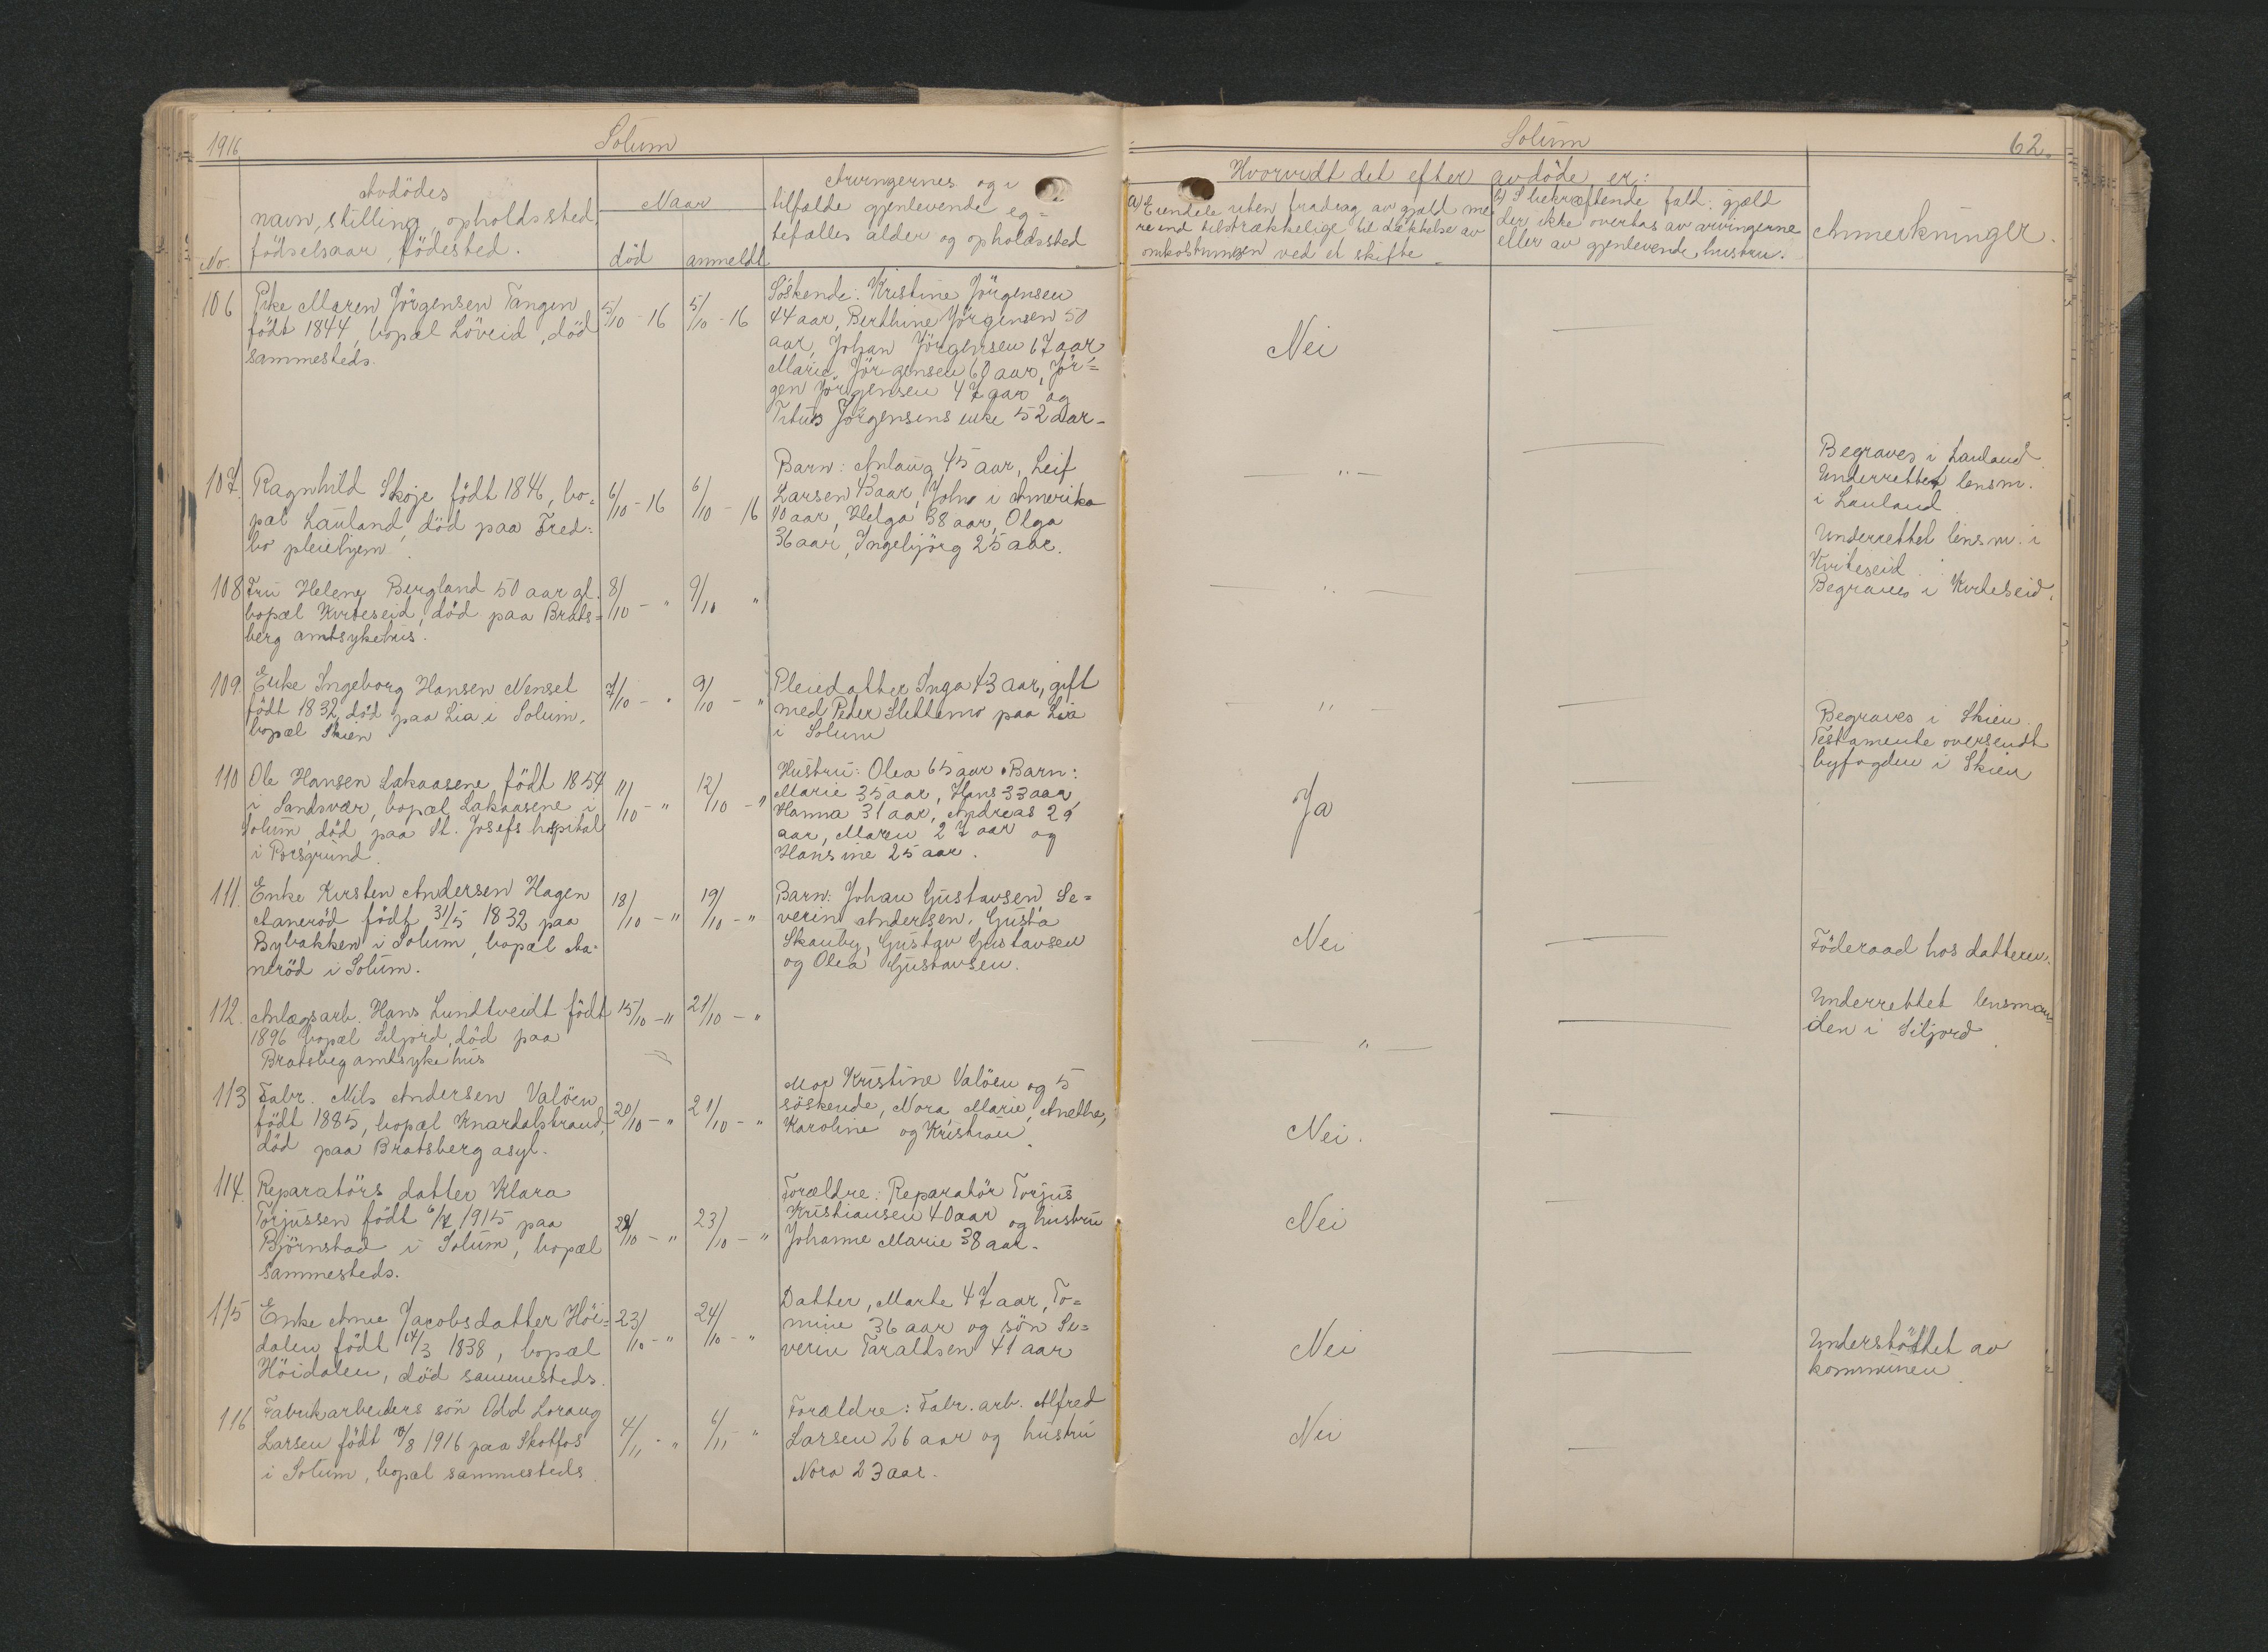 1916
Solum
Avdödes
navn, stilling, opholdssted,
födselsaar, födested.
No.
Naar
död
anmeldt
Arvingernes og i
tilfælde gjenlevende eg=
tefælles alder og opholdssted
106
Pike Maren Jörgensen Tangen
födt 1844, bopæl Löveid, död
sammesteds.
5/10 - 16
5/10 - 16
Söskende: Kristine Jörgensen
44 aar, Berthine Jörgensen 50
aar, Johan Jörgensen 67 aar
Marie Jörgensen 60 aar, Jör=
gen Jörgensen 47 aar og
Titus Jörgensens enke 52 aar -
107.
Ragnhild Skoje födt 1846, bo=
pæl Lauland, död paa Fred=
bo pleiehjem.
6/10 - 16
6/10 - 16
Barn: Anlaug 45 aar, Leif
Larsen 43 aar, John i Amerika
40 aar, Helga 38 aar, Olga
36 aar, Ingebjörg 25 aar.
108
Fru Helene Bergland 50 aar gl.
bopæl Kviteseid, död paa Brats=
berg amtsykehus.
8/10 - "
9/10 "
109.
Enke Ingeborg Hansen Nenset
födt 1832, död paa Lia i Solum,
bopæl Skien.
7/10 - "
9/10 - "
Pleiedatter Inga 43 aar, gift
med Peder Slettemo paa Lia
i Solum
110
Ole Hansen Lakaasene födt 1854
i Sandsvær, bopæl Lakaasene i
Solum, död paa St. Josefs hospital
i Porsgrund.
11/10 - "
12/10 - "
Hustru: Olea 65 aar. Barn:
Marie 35 aar, Hans 33 aar,
Hanna 31 aar, Andreas 29
aar, Maren 27 aar og
Hansine 25 aar.
111.
Enke Kirsten Andersen Hagen
Aaneröd födt 31/5 1832 paa
Bybakken i Solum, bopæl Aa=
neröd i Solum.
18/10 - "
19/10 - "
Barn: Johan Gustavsen, Se=
verin Andersen, Gusta
Skauby, Gustav Gustavsen
og Olea Gustavsen.
112.
Anlægsarb. Hans Lundtveidt födt
1896 bopæl Siljord, död paa
Bratsbeg amtsykehus
15/10 - "
21/10 - "
113
Fabr. Nils Andersen Valöen
födt 1885, bopæl Knardalstrand,
död paa Bratsberg asyl.
20/10 - "
21/10 - "
Mor Kristine Valöen og 5
söskende, Nora, Marie, Anethe,
Karoline og Kristian.
114.
Reparatörs datter Klara
Torjussen födt 6/7 1915 paa
Björnstad i Solum, bopæl
sammesteds.
/10 - "
23/10 - "
Forældre: Reparatör Torjus
Kristiansen 40 aar og hustru
Johanne Marie 38 aar.
115
Enke Anne Jacobsdatter Höi=
dalen, födt 14/3 1838, bopæl
Höidalen, död sammesteds.
23/10 - "
24/10 - "
Datter, Marte 47 aar, To=
mine 36 aar og sön Se=
verin Taraldsen 41 aar
116
Fabrikarbeiders sön Odd Loraug
Larsen födt /8 1916 paa Skotfos
i Solum, bopæl sammesteds.
4/11 - "
6/11 "
Forældre: Fabr. arb. Alfred
Larsen 26 aar og hustru
Nora 23 aar.
Solum
62.
Hvorvidt det efter avdöde er:
a) Eiendele uten fradrag av gjæld me
re end tilstrækkelige til dækkelse av
omkostningen ved et skifte
b) I bekræftende fald: gjæld
der ikke overtas av arvingerne
eller av gjenlevende hustru.
Anmerkninger.
Nei
- " -
Begraves i Lauland.
Underrettet lensm.
i Lauland.
" -
Underrettet lensm. i
Kviteseid.
Begraves i Kviteseid.
- " -
Begraves i Skien.
Testamente oversendt
byfogden i Skien
Ja
Nei
Föderaad hos datteren.
- " -
Underrettet lensman=
den i Siljord.
Nei.
Nei
Nei
Understöttet av
kommunen.
Nei